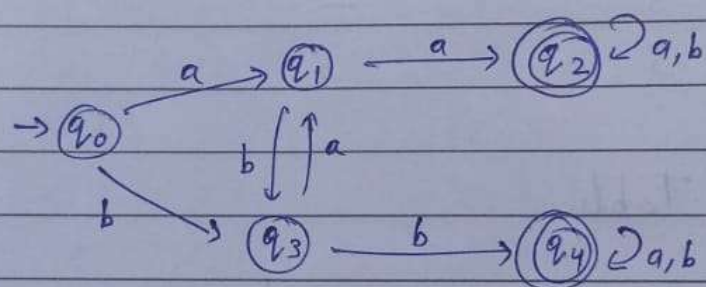 a q1 a q2 a,b
→ q0
b a
b q3 b q4 a,b